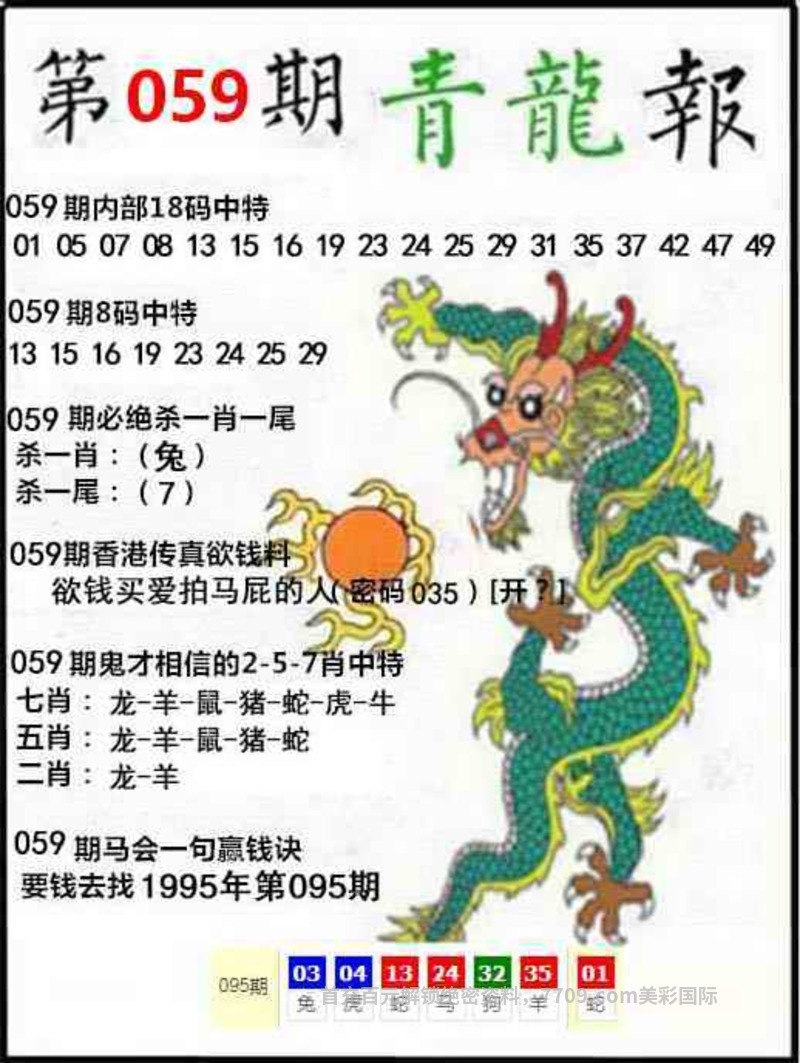 第059期青龍報
059期内部18码中特
01 05 07 08 13 15 16 19 23 24 25 29 31 35 37 42 47 49
059期8码中特
13 15 16 19 23 24 25 29
059 期必绝杀一肖一尾
杀一肖：（兔）
杀一尾：（7）
059期香港传真欲钱料
欲钱买爱拍马屁的人(密码035)[开？]
059期鬼才相信的2-5-7肖中特
七肖：龙-羊-鼠-猪-蛇-虎-牛
五肖：龙-羊-鼠-猪-蛇
二肖：龙-羊
059 期马会一句赢钱诀
要钱去找1995年第095期
095期 03 04 13 24 32 35 01
兔 虎 蛇 马 狗 羊 蛇
百元解锁绝密资料，7709.com美彩国际